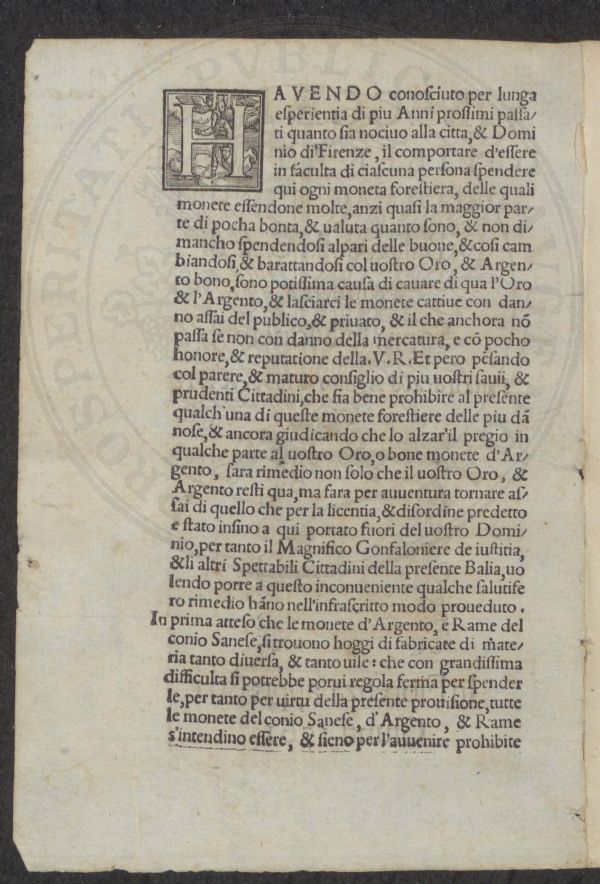 HAVENDO conosciuto per lunga
esperientia di piu Anni prossimi passa/
ti quanto sia nociuo alla citta, & Domi
nio di Firenze, il comportare d'essere
in faculta di ciascuna persona spendere
qui ogni moneta forestiera, delle quali
monete essendone molte, anzi quasi la maggior par/
te di pocha bonta, & ualuta quanto sono, & non di/
mancho spendendosi alpari delle buone, & cosi cam
biandosi, & barattandosi col uostro Oro, & Argen/
to bono, sono potissima causa di cauare di qua l'Oro
& l'Argento, & lasciarci le monete cattiue con dan/
no assai del publico, & priuato, & il che anchora nõ
passa se non con danno della mercatura, e cõ pocho
honore, & reputatione della. V. R. Et pero pẽsando
col parere, & maturo consiglio di piu uostri sauii, &
prudenti Cittadini, che sia bene prohibire al presente
qualch'una di queste monete forestiere delle piu dã
nose, & ancora giudicando che lo alzar'il pregio in
qualche parte al uostro Oro, o bone monete d'Ar/
gento, sara rimedio non solo che il uostro Oro, &
Argento resti qua, ma fara per auuentura tornare as/
sai di quello che per la licentia, & disordine predetto
e stato insino a qui portato fuori del uostro Domi/
nio, per tanto il Magnifico Gonfaloniere de iustitia,
& li altri Spettabili Cittadini della presente Balia, uo
lendo porre a questo inconueniente qualche salutife
ro rimedio hãno nell'infrascritto modo proueduto.
In prima atteso che le monete d'Argento, e Rame del
conio Sanese, si trouono hoggi di fabricate di mate/
ria tanto diuersa, & tanto uile: che con grandissima
difficulta si potrebbe porui regola ferma per spender
le, per tanto per uirtu della presente prouisione, tutte
le monete del conio Sanese, d'Argento, & Rame
s'intendino essere, & sieno per l'auuenire prohibite